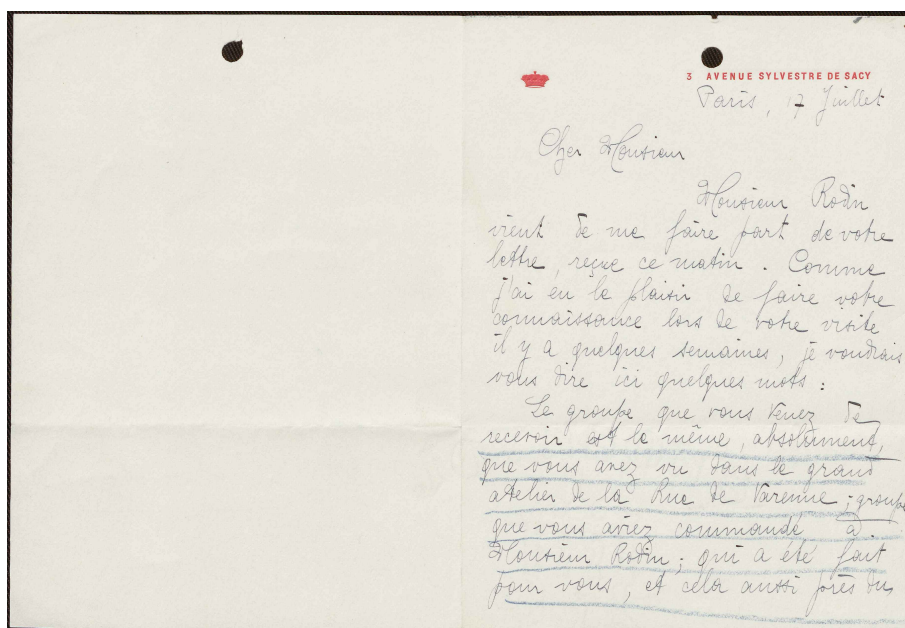 3 AVENUE SYLVESTRE DE SACY
Paris, 17 Juillet
Cher Monsieur
Monsieur Rodin
vient de me faire part de votre
lettre, reçue ce matin. Comme
j'ai eu le plaisir de faire votre
connaissance lors de votre visite
il y a quelques semaines, je voudrais
vous dire ici quelques mots :
Le groupe que vous venez de
recevoir est le même, absolument,
que vous avez vu dans le grand
atelier de la Rue de Varenne ; groupe
que vous aviez commandé à
Monsieur Rodin ; qui a été fait
pour vous, et cela aussi près du